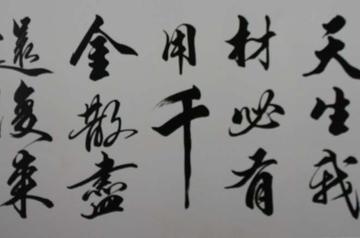 天生我
材必有
用千
金散盡
還復来